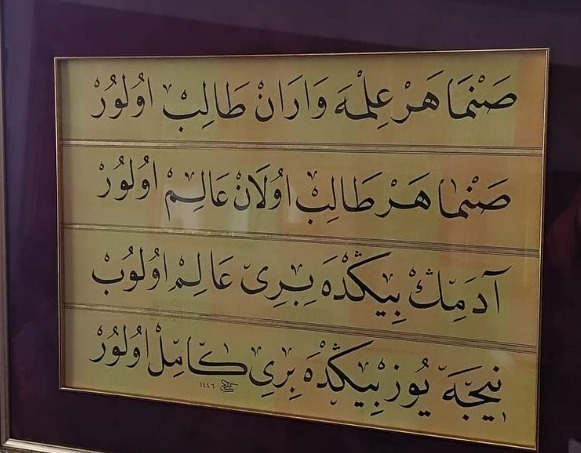 صَنْمَا هَرْ عِلْمَه وَارَانْ طَالِبْ اوُلُورْ
صَنْمَا هَرْ طَالِبْ اوُلَانْ عَالِمْ اوُلُورْ
آدَمِڭْ بِيڭْدَه بِرِى عَالِمْ اوُلُوبْ
نِيجَه يُوزْ بِيڭْدَه بِرِى كَامِلْ اوُلُورْ
١٤٤٦